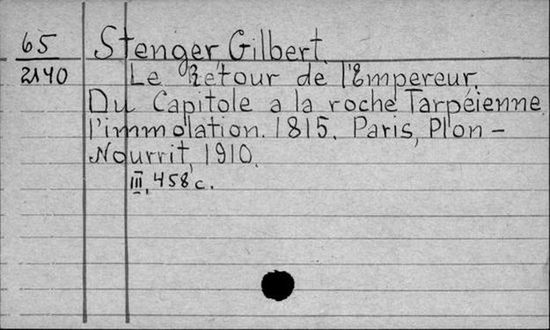 65
2140
Stenger Gilbert
Le Retour de l'Empereur.
Du Capitole a la roche Tarpéienne
l'immolation. 1815. Paris, Plon-
Nourrit, 1910.
III, 458 c.